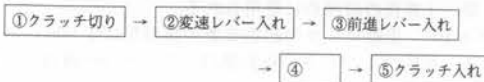 ①クラッチ切り → ②変速レバー入れ → ③前進レバー入れ
→ ④ → ⑤クラッチ入れ